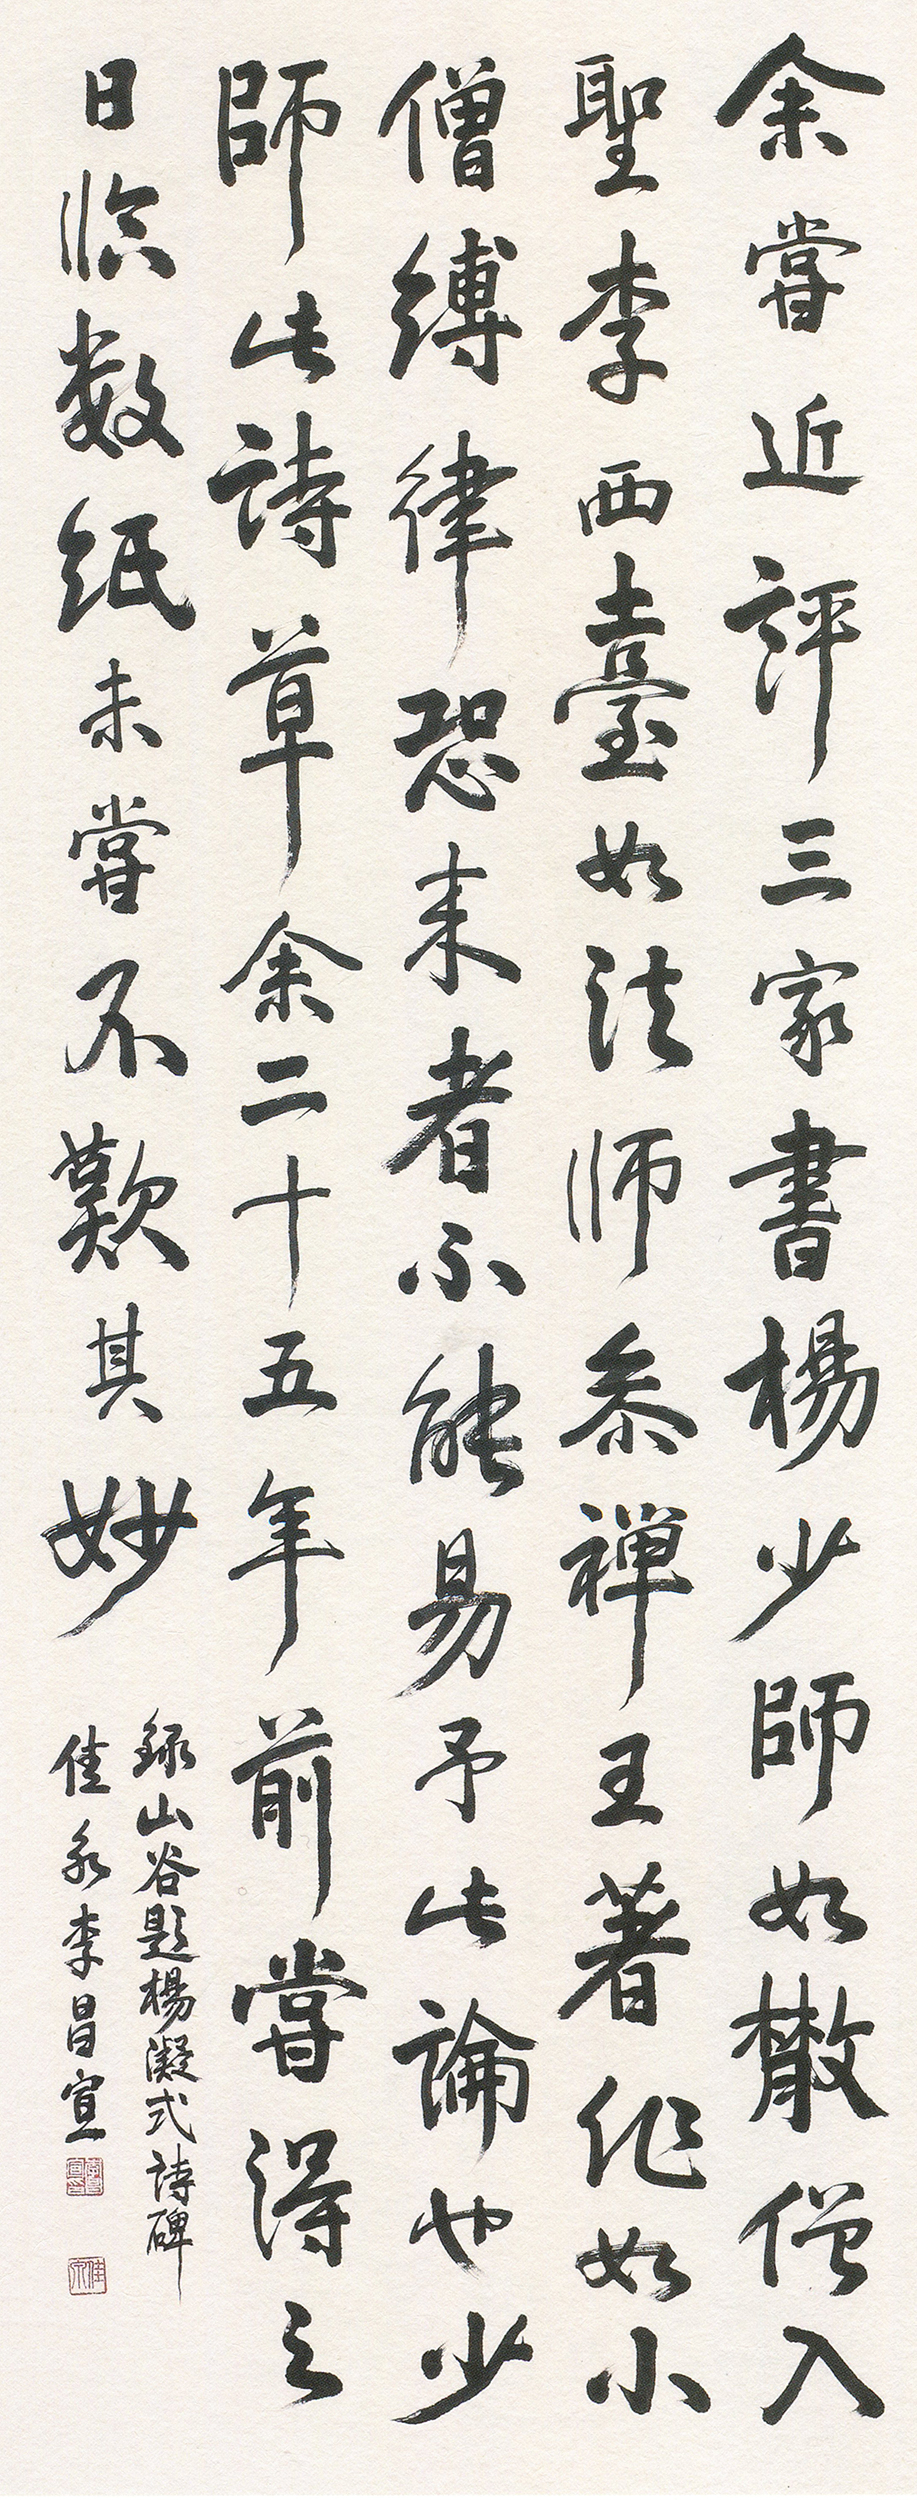 余嘗近評三家書楊少師如散僧入
聖李西臺如法师参禅王著作如小
僧縛律恐来者不能易予此論也少
師此詩草余二十五年前嘗得之
日临数纸未嘗不歎其妙
録山谷題楊凝式詩碑
佳永李昌宣